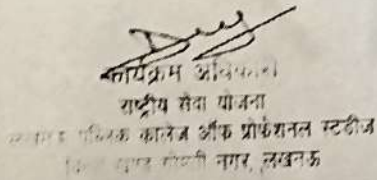 कार्यक्रम अधिकारी
राष्ट्रीय सेवा योजना
पब्लिक कालेज ऑफ प्रोफेशनल स्टडीज
गोमती नगर, लखनऊ